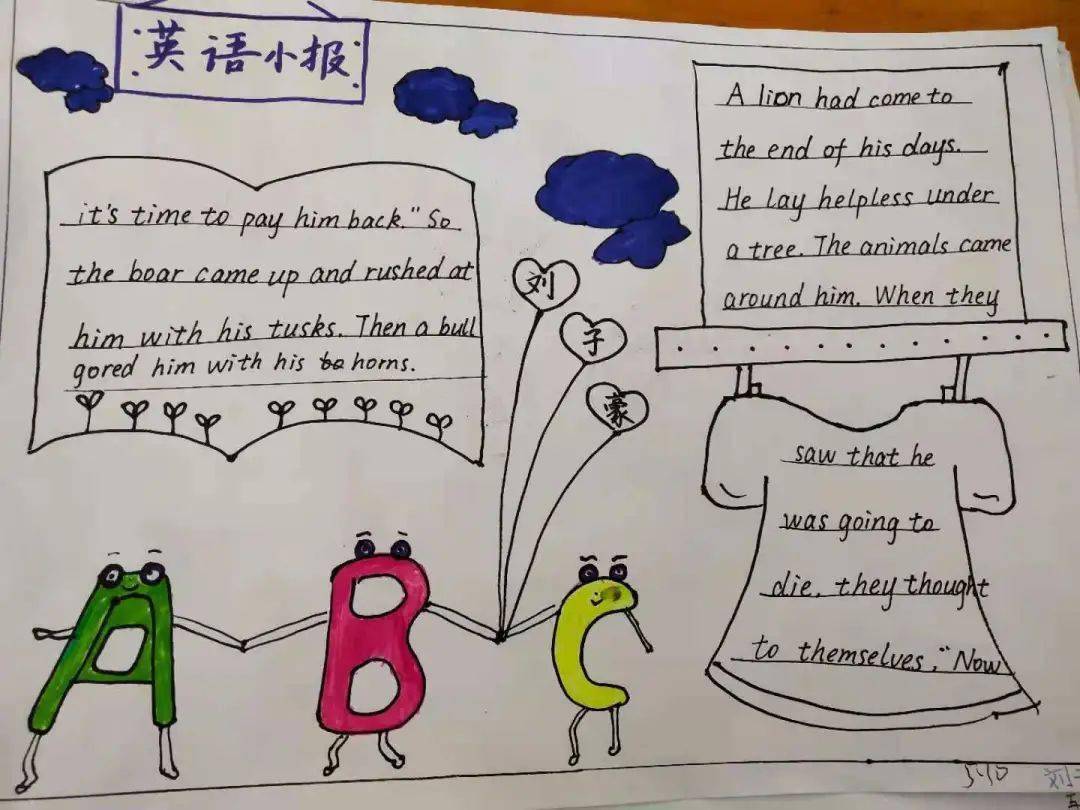 英语小报
A lion had come to
the end of his days.
He lay helpless under
a tree. The animals came
around him. When they
saw that he
was going to
die, they thought
to themselves, "Now
it's time to pay him back." So
the boar came up and rushed at
him with his tusks. Then a bull
gored him with his horns.
刘
子
豪
A B C
刘